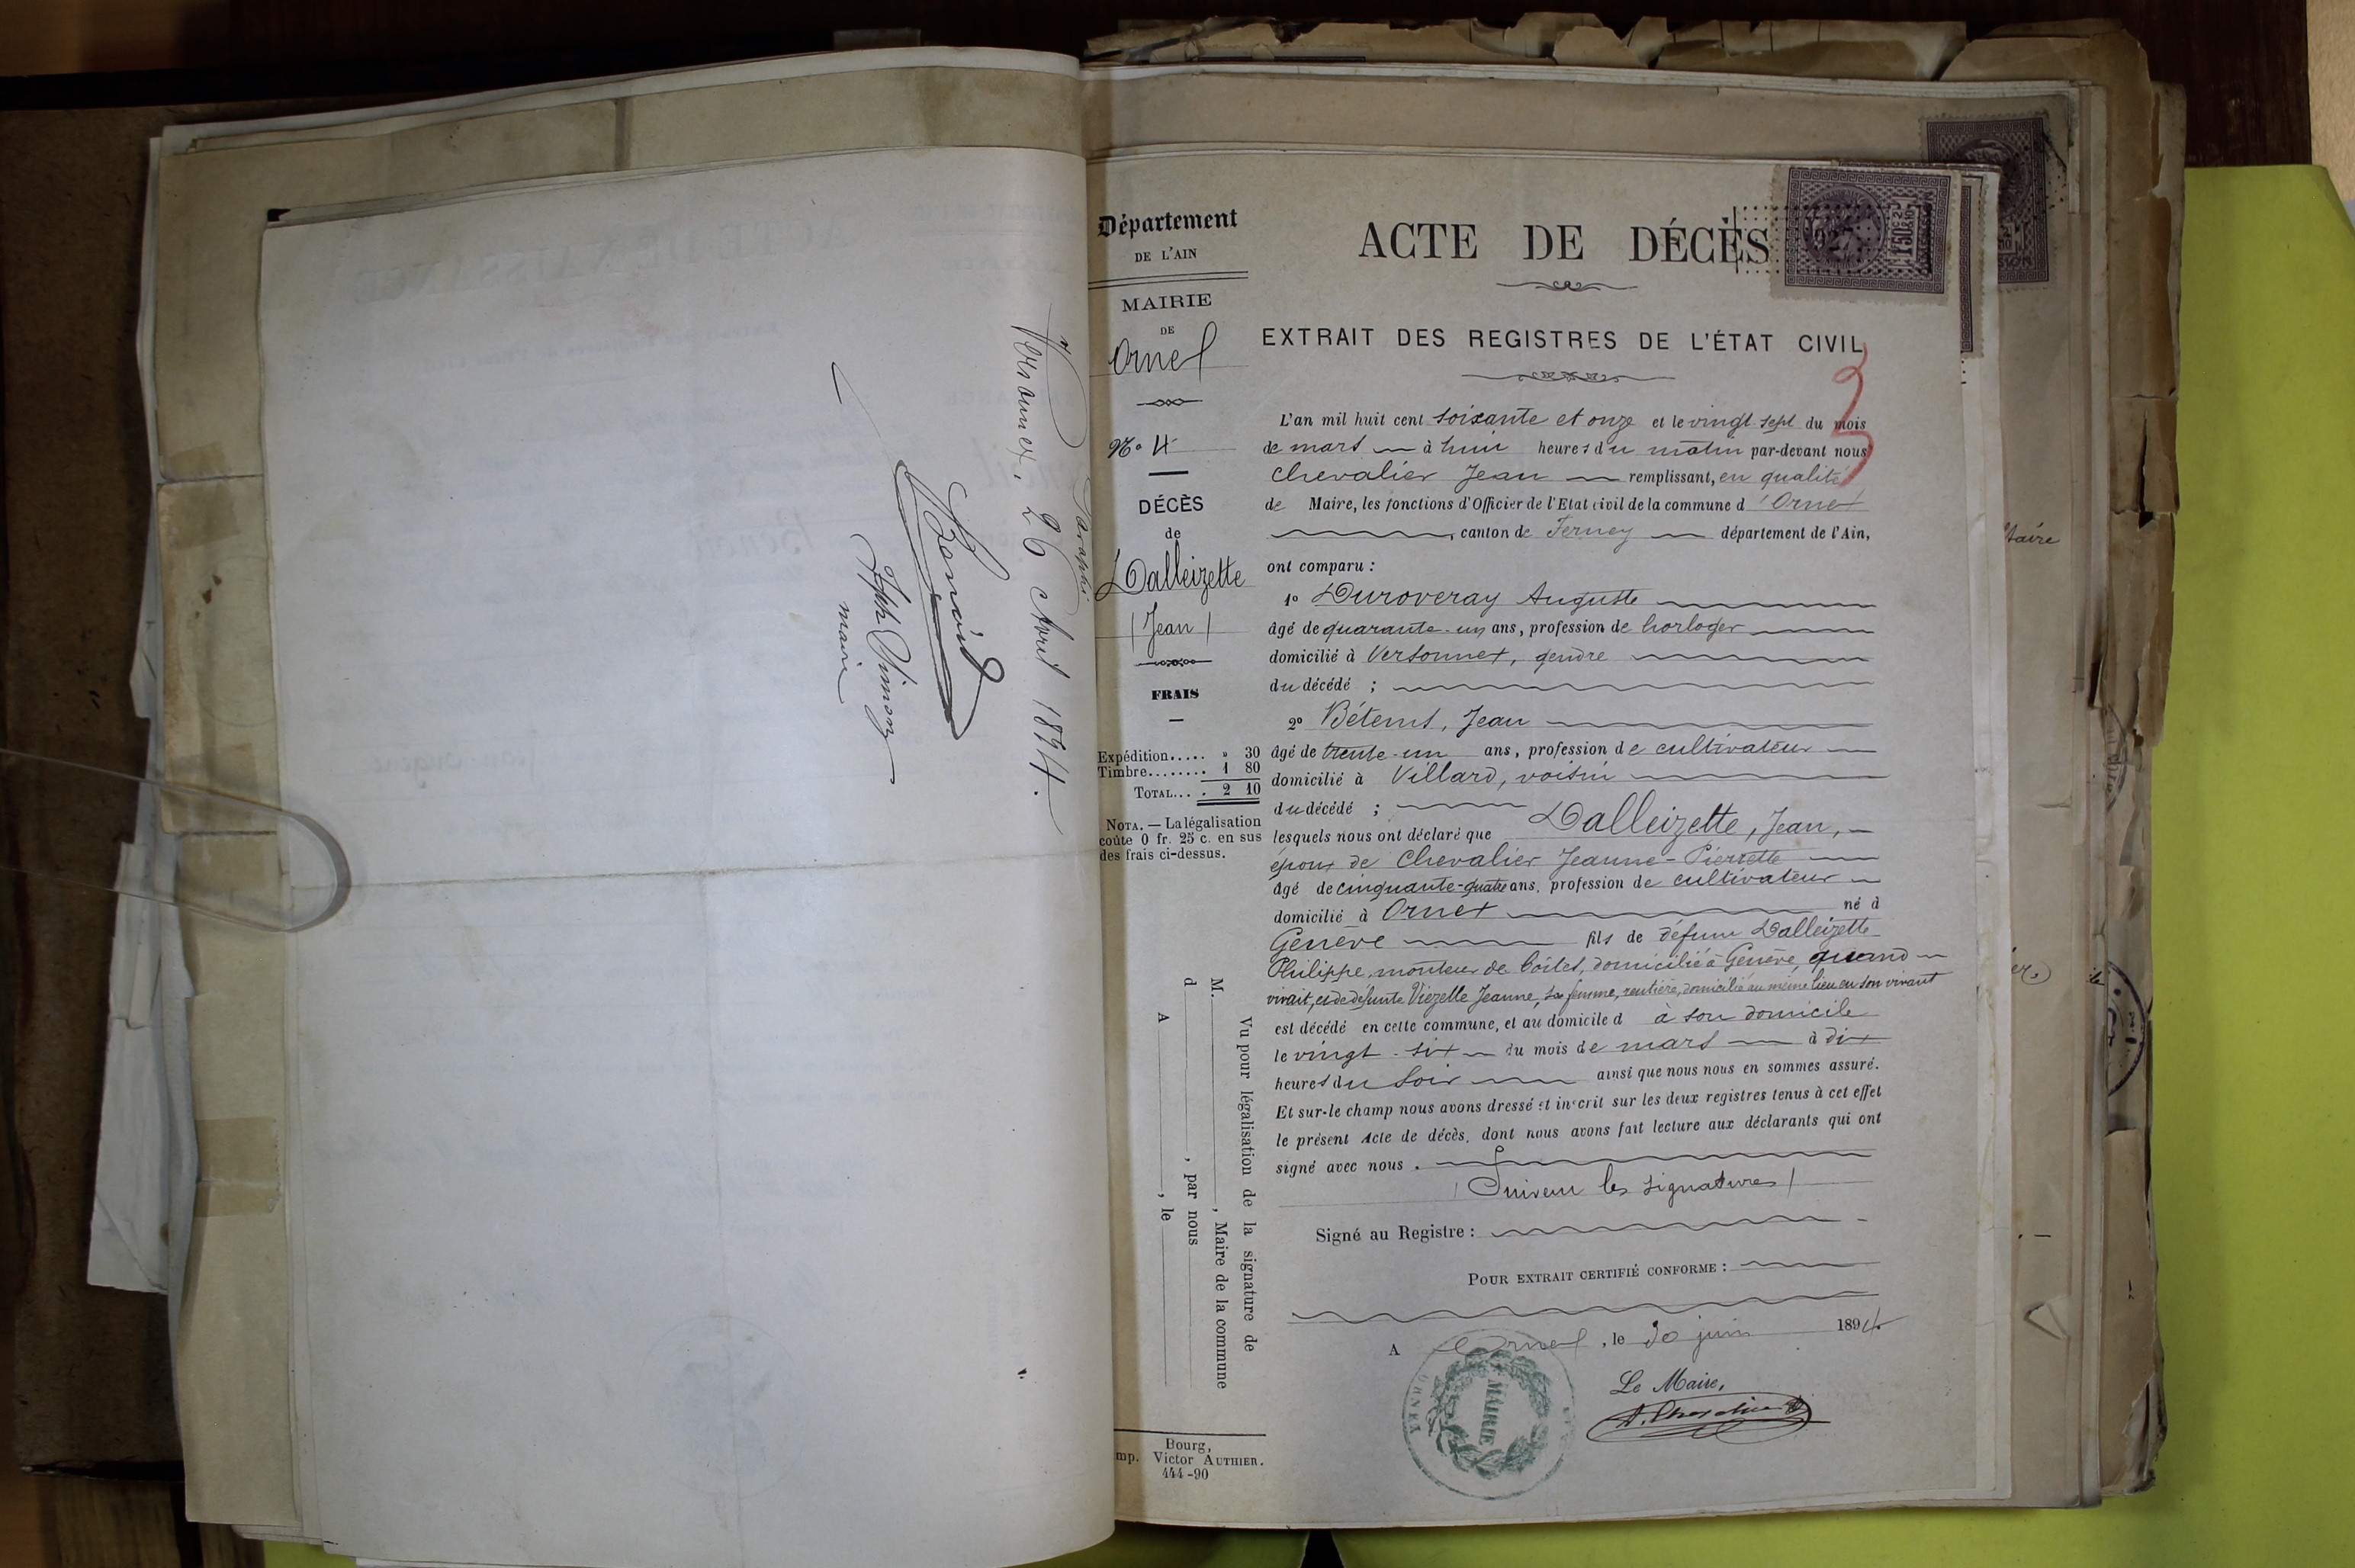 Versonnex, 26 Avril 1894.
maire
Département
DE L'AIN
MAIRIE
DE
Ornex
N° 4
DÉCÈS
de
Dalleizette
(Jean)
FRAIS
Expédition..... » 30
Timbre........ 1 80
TOTAL.... 2 10
NOTA. — La légalisation
coûte 0 fr. 25 c. en sus
des frais ci-dessus.
Vu pour légalisation de la signature de
M. , Maire de la commune
d , par nous
A , le
Bourg,
mp. Victor AUTHIER.
444-90
ACTE DE DÉCÈS
EXTRAIT DES REGISTRES DE L'ÉTAT CIVIL
3
L'an mil huit cent soixante et onze et le vingt-sept du mois
de mars à huit heures du matin par-devant nous
Chevalier Jean remplissant, en qualité
de Maire, les fonctions d'Officier de l'Etat civil de la commune d'Ornex
, canton de Ferney département de l'Ain,
ont comparu :
1° Duroveray Auguste
âgé de quarante-un ans, profession de horloger
domicilié à Versonnex, gendre
du décédé ;
2° Bétems, Jean
âgé de trente-un ans, profession de cultivateur
domicilié à Villard, voisin
du décédé ;
lesquels nous ont déclaré que Dalleizette, Jean,
époux de Chevalier Jeanne-Pierrette
âgé de cinquante-quatre ans, profession de cultivateur
domicilié à Ornex né à
Genève fils de défunt Dalleizette
Philippe, monteur de boîtes, domicilié à Genève, quand
vivait, et de défunte Viezelle Jeanne, sa femme, rentière, domiciliée au même lieu en son vivant
est décédé en cette commune, et au domicile d à son domicile
le vingt-six du mois de mars à dix
heures du soir ainsi que nous nous en sommes assuré.
Et sur-le champ nous avons dressé et inscrit sur les deux registres tenus à cet effet
le présent Acte de décès, dont nous avons fait lecture aux déclarants qui ont
signé avec nous.
(Suivent les signatures)
Signé au Registre :
POUR EXTRAIT CERTIFIÉ CONFORME :
A Ornex, le 30 juin 1894.
Le Maire,
MAIRIE
ORNEX